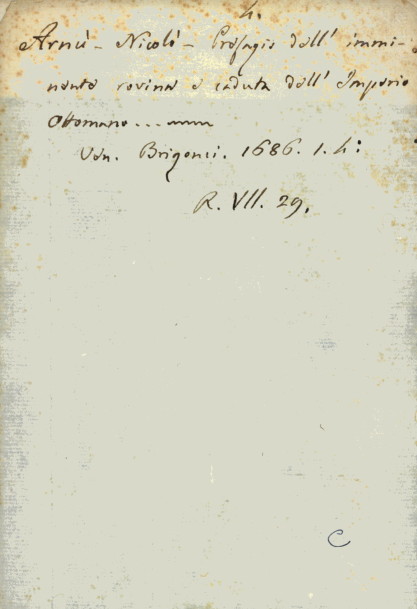 4.
Arnù - Nicolò - Presagio dell' immi-
nente rovina e caduta dell' Imperio
Ottomano...
Ven. Brigonci. 1686. 1. 4:
R. VII. 29.
C